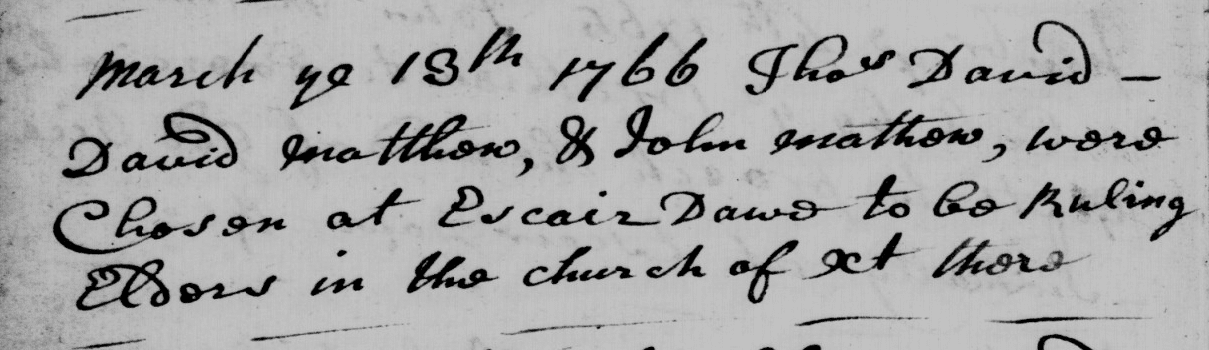 March ye 13th 1766 Thos David –
David Matthew, & John Mathew, were
Chosen at Escair Dawe to be Ruling
Elders in the church of xt there